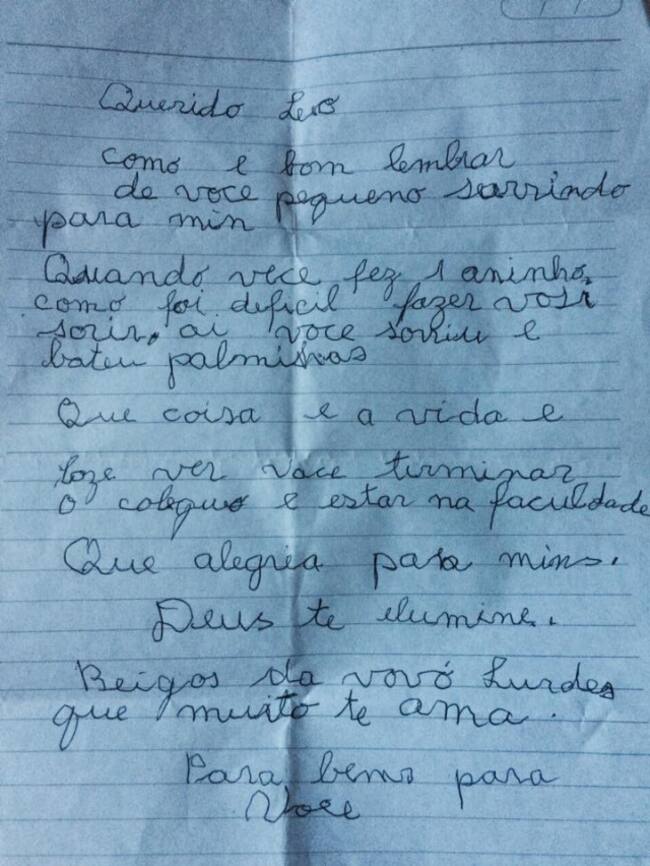 Querido Leo
como e bom lembrar
de voce pequeno sorrindo
para min
Quando vece fez 1 aninho,
como foi dificil fazer vose
sorir. ai voce sorriu e
bateu palminhas
Que coisa e a vida e
hoze ver voce terminar
o coleguo e estar na faculdade
Que alegria para mins.
Deus te elumine.
Beigos da vovó Lurdes
que muito te ama.
Para bens para
Voce